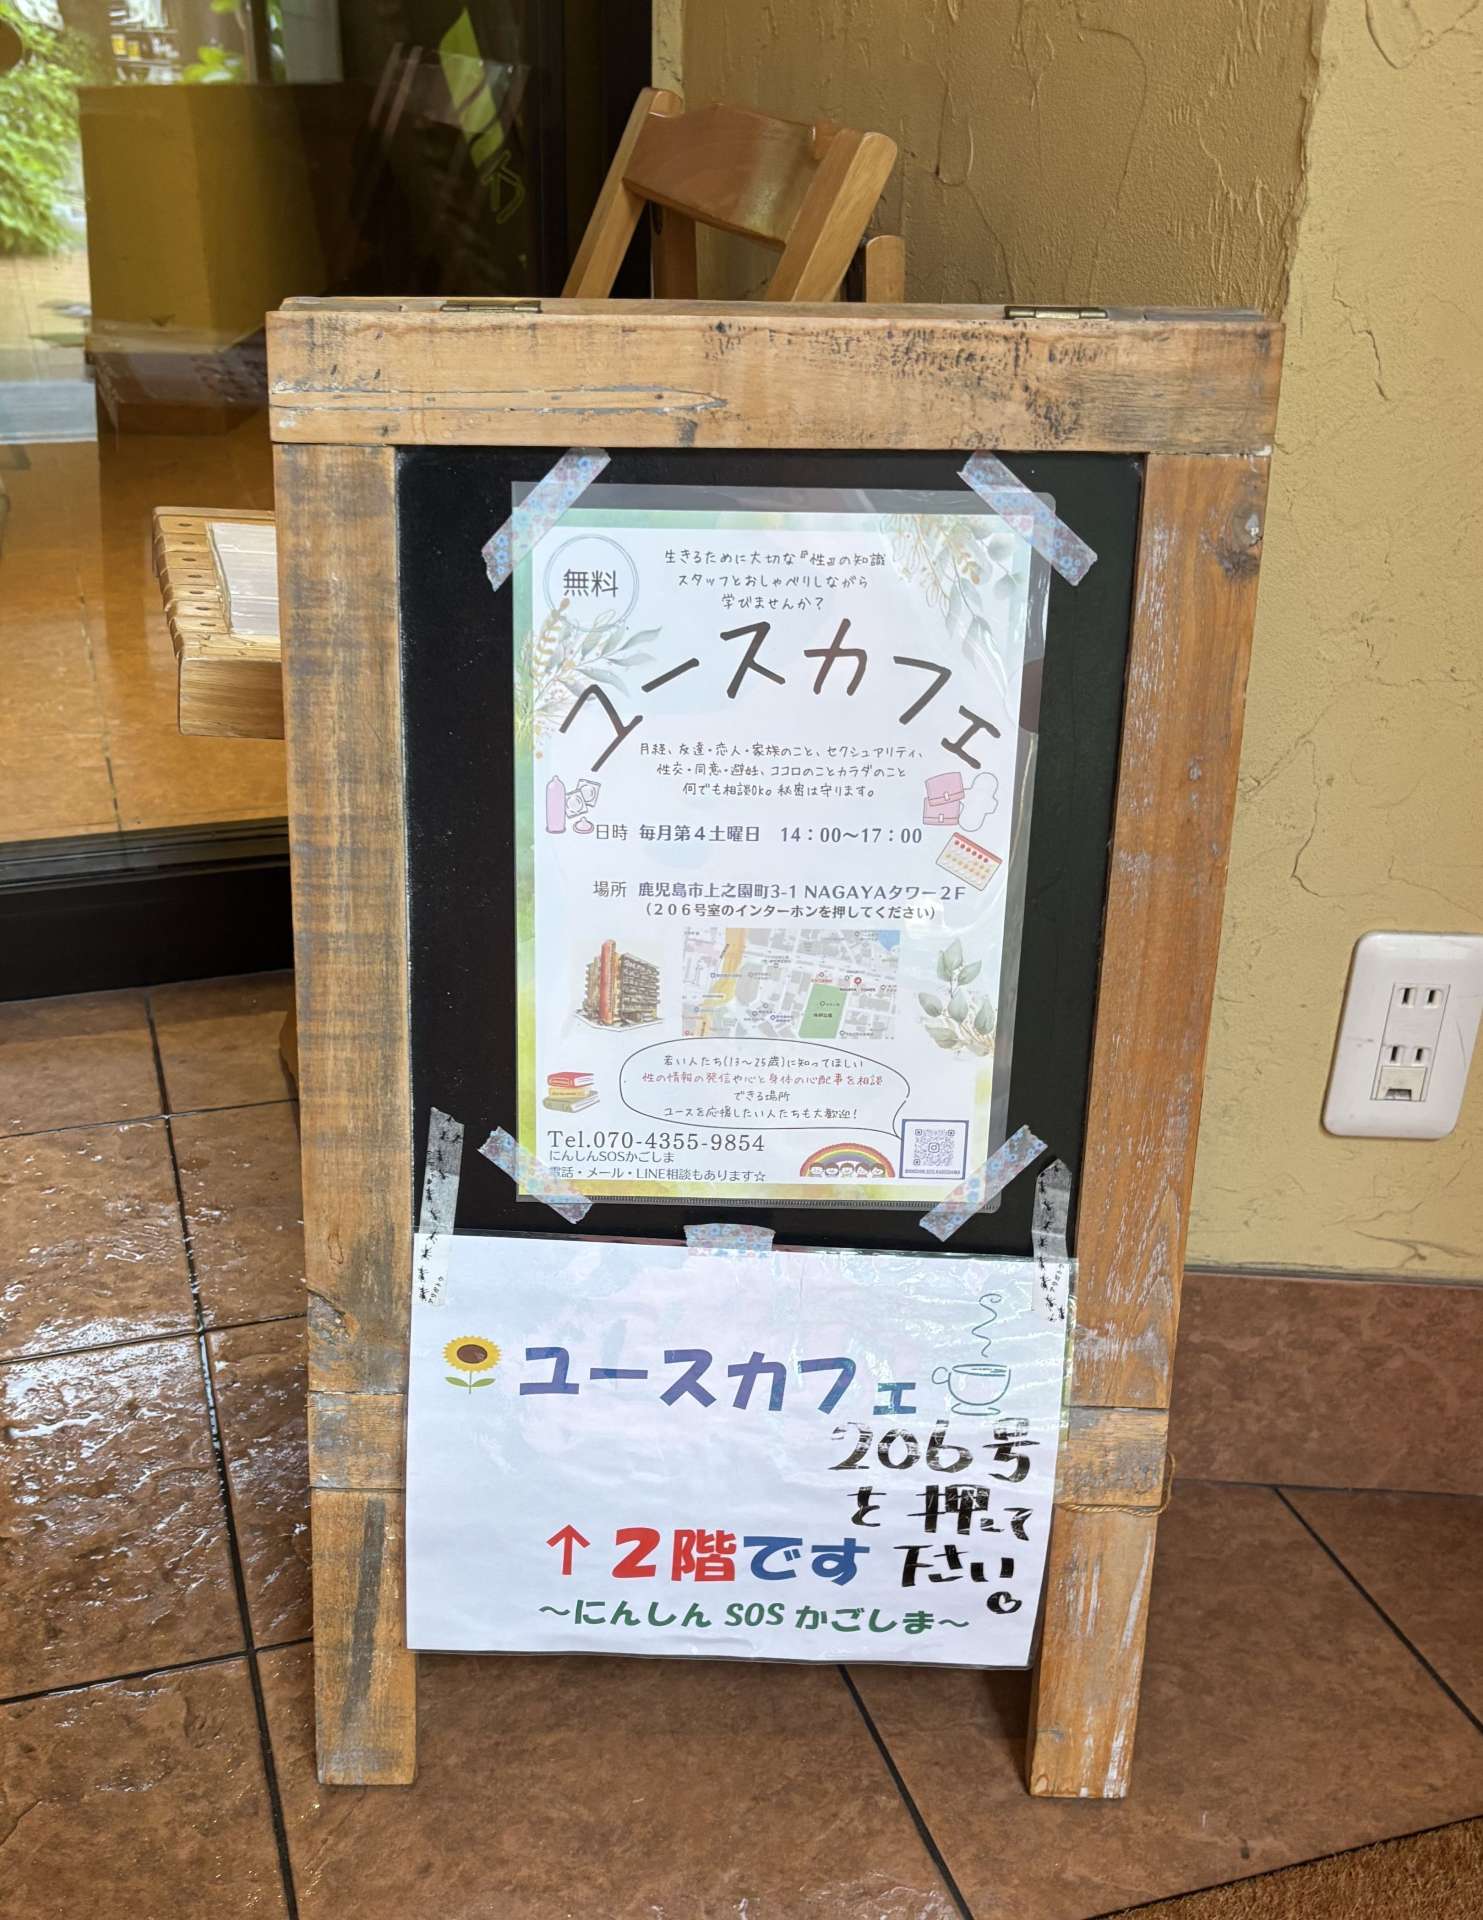 無料
生きるために大切な『性』の知識
スタッフとおしゃべりしながら
学びませんか？
ユースカフェ
月経、友達・恋人・家族のこと、セクシュアリティ、
性交・同意・避妊、ココロのことカラダのこと
何でも相談Ok。秘密は守ります。
日時 毎月第４土曜日 14：00～17：00
場所 鹿児島市上之園町3-1 NAGAYAタワー２F
（２０６号室のインターホンを押してください）
若い人たち(13～25歳)に知ってほしい
性の情報の発信や心と身体の心配事を相談
できる場所
ユースを応援したい人たちも大歓迎！
Tel.070-4355-9854
にんしんSOSかごしま
電話・メール・LINE相談もあります☆
ユースカフェ
206号
を押して
下さい♡
↑２階です
～にんしん SOS かごしま～